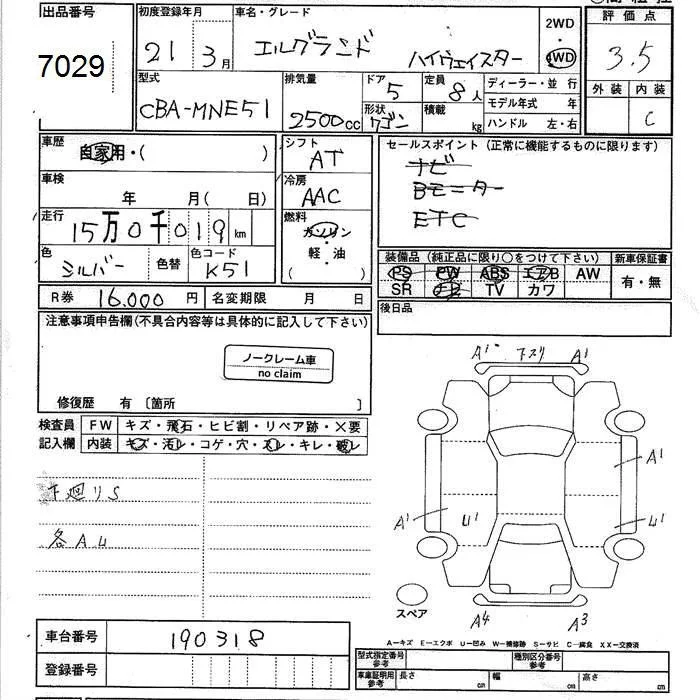 出品番号
7029
初度登録年月
21年 3月
車名・グレード
エルグランド ハイウェイスター
2WD
・
4WD
評価点
3.5
外装 内装
C
型式
CBA-MNE51
排気量
2500cc
ドア
5
形状
ワゴン
定員
8人
積載
kg
ディーラー・並行
モデル年式 年
ハンドル 左・右
車歴
自家用・( )
車検
年 月( 日)
走行
15万0千019km
色
シルバー
色替
色コード
K51
シフト
AT
冷房
AAC
燃料
ガソリン
・
軽・油
( )
セールスポイント(正常に機能するものに限ります)
ナビ
Bモニター
ETC
装備品(純正品に限り○をつけて下さい) 新車保証書
PS PW ABS エアB AW
SR ナビ TV カワ
有・無
R券 16.000円 名変期限 月 日
後日品
注意事項申告欄(不具合内容等は具体的に記入して下さい)
ノークレーム車
no claim
修復歴 有 〔箇所 〕
検査員
記入欄
FW キズ・飛石・ヒビ割・リペア跡・X要
内装 キズ・汚レ・コゲ・穴・スレ・キレ・破レ
下廻りS
各AU
A1 A1
A1
A1 U1 U1
スペア
A4 A3
A-キズ E-エクボ U-凹み W-補修跡 S-サビ C-腐食 XX-交換済
車台番号 190318
登録番号
型式指定番号
参考
種別区分番号
参考
車庫証明用
参考
長さ cm 幅 cm 高さ cm